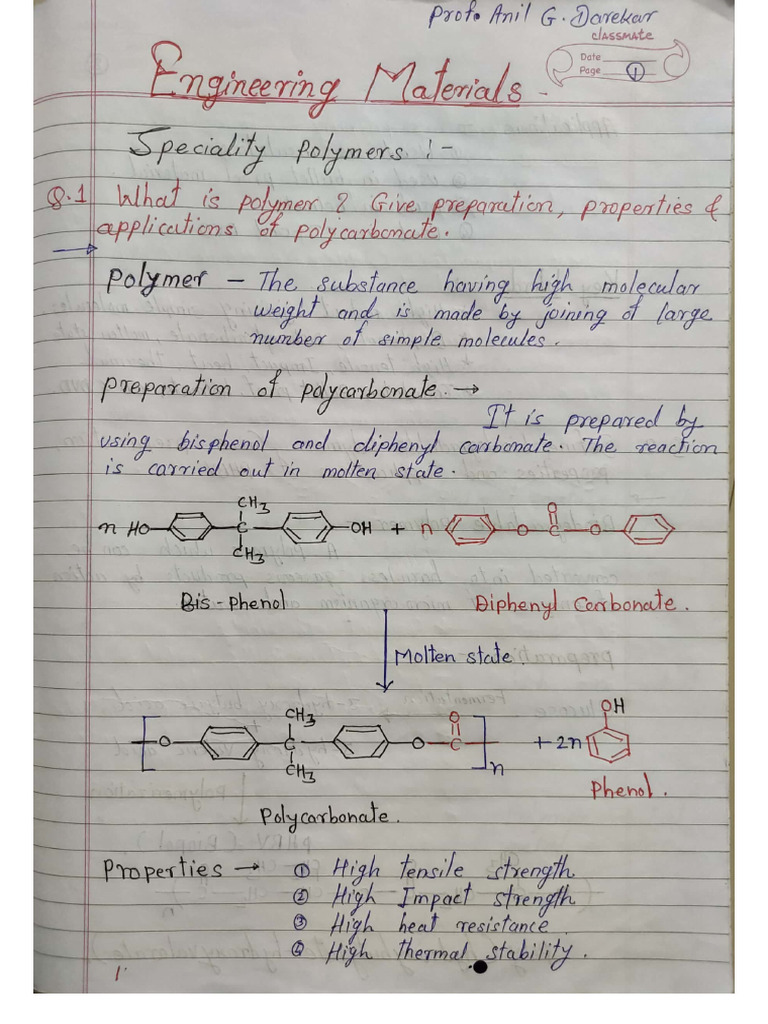 Prof. Anil G. Darekar
classmate
Date
Page 1
Engineering Materials -
Speciality Polymers :-
Q.1 What is polymer? Give preparation, properties &
applications of polycarbonate.
→
Polymer - The substance having high molecular
weight and is made by joining of large
number of simple molecules.
Preparation of polycarbonate. →
It is prepared by
using bisphenol and diphenyl carbonate. The reaction
is carried out in molten state.
CH3 O
n HO C OH + n O C O
CH3
Bis-phenol Diphenyl Carbonate.
Molten state.
OH
CH3 O
O C O C + 2n
CH3 n
Phenol.
Polycarbonate.
Properties → ① High tensile strength
② High Impact strength
③ High heat resistance
④ High thermal stability.